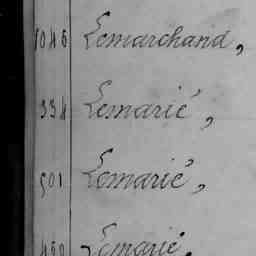 1046 Lemarchand,
334 Lemarié,
501 Lemarié,
Lemarié,